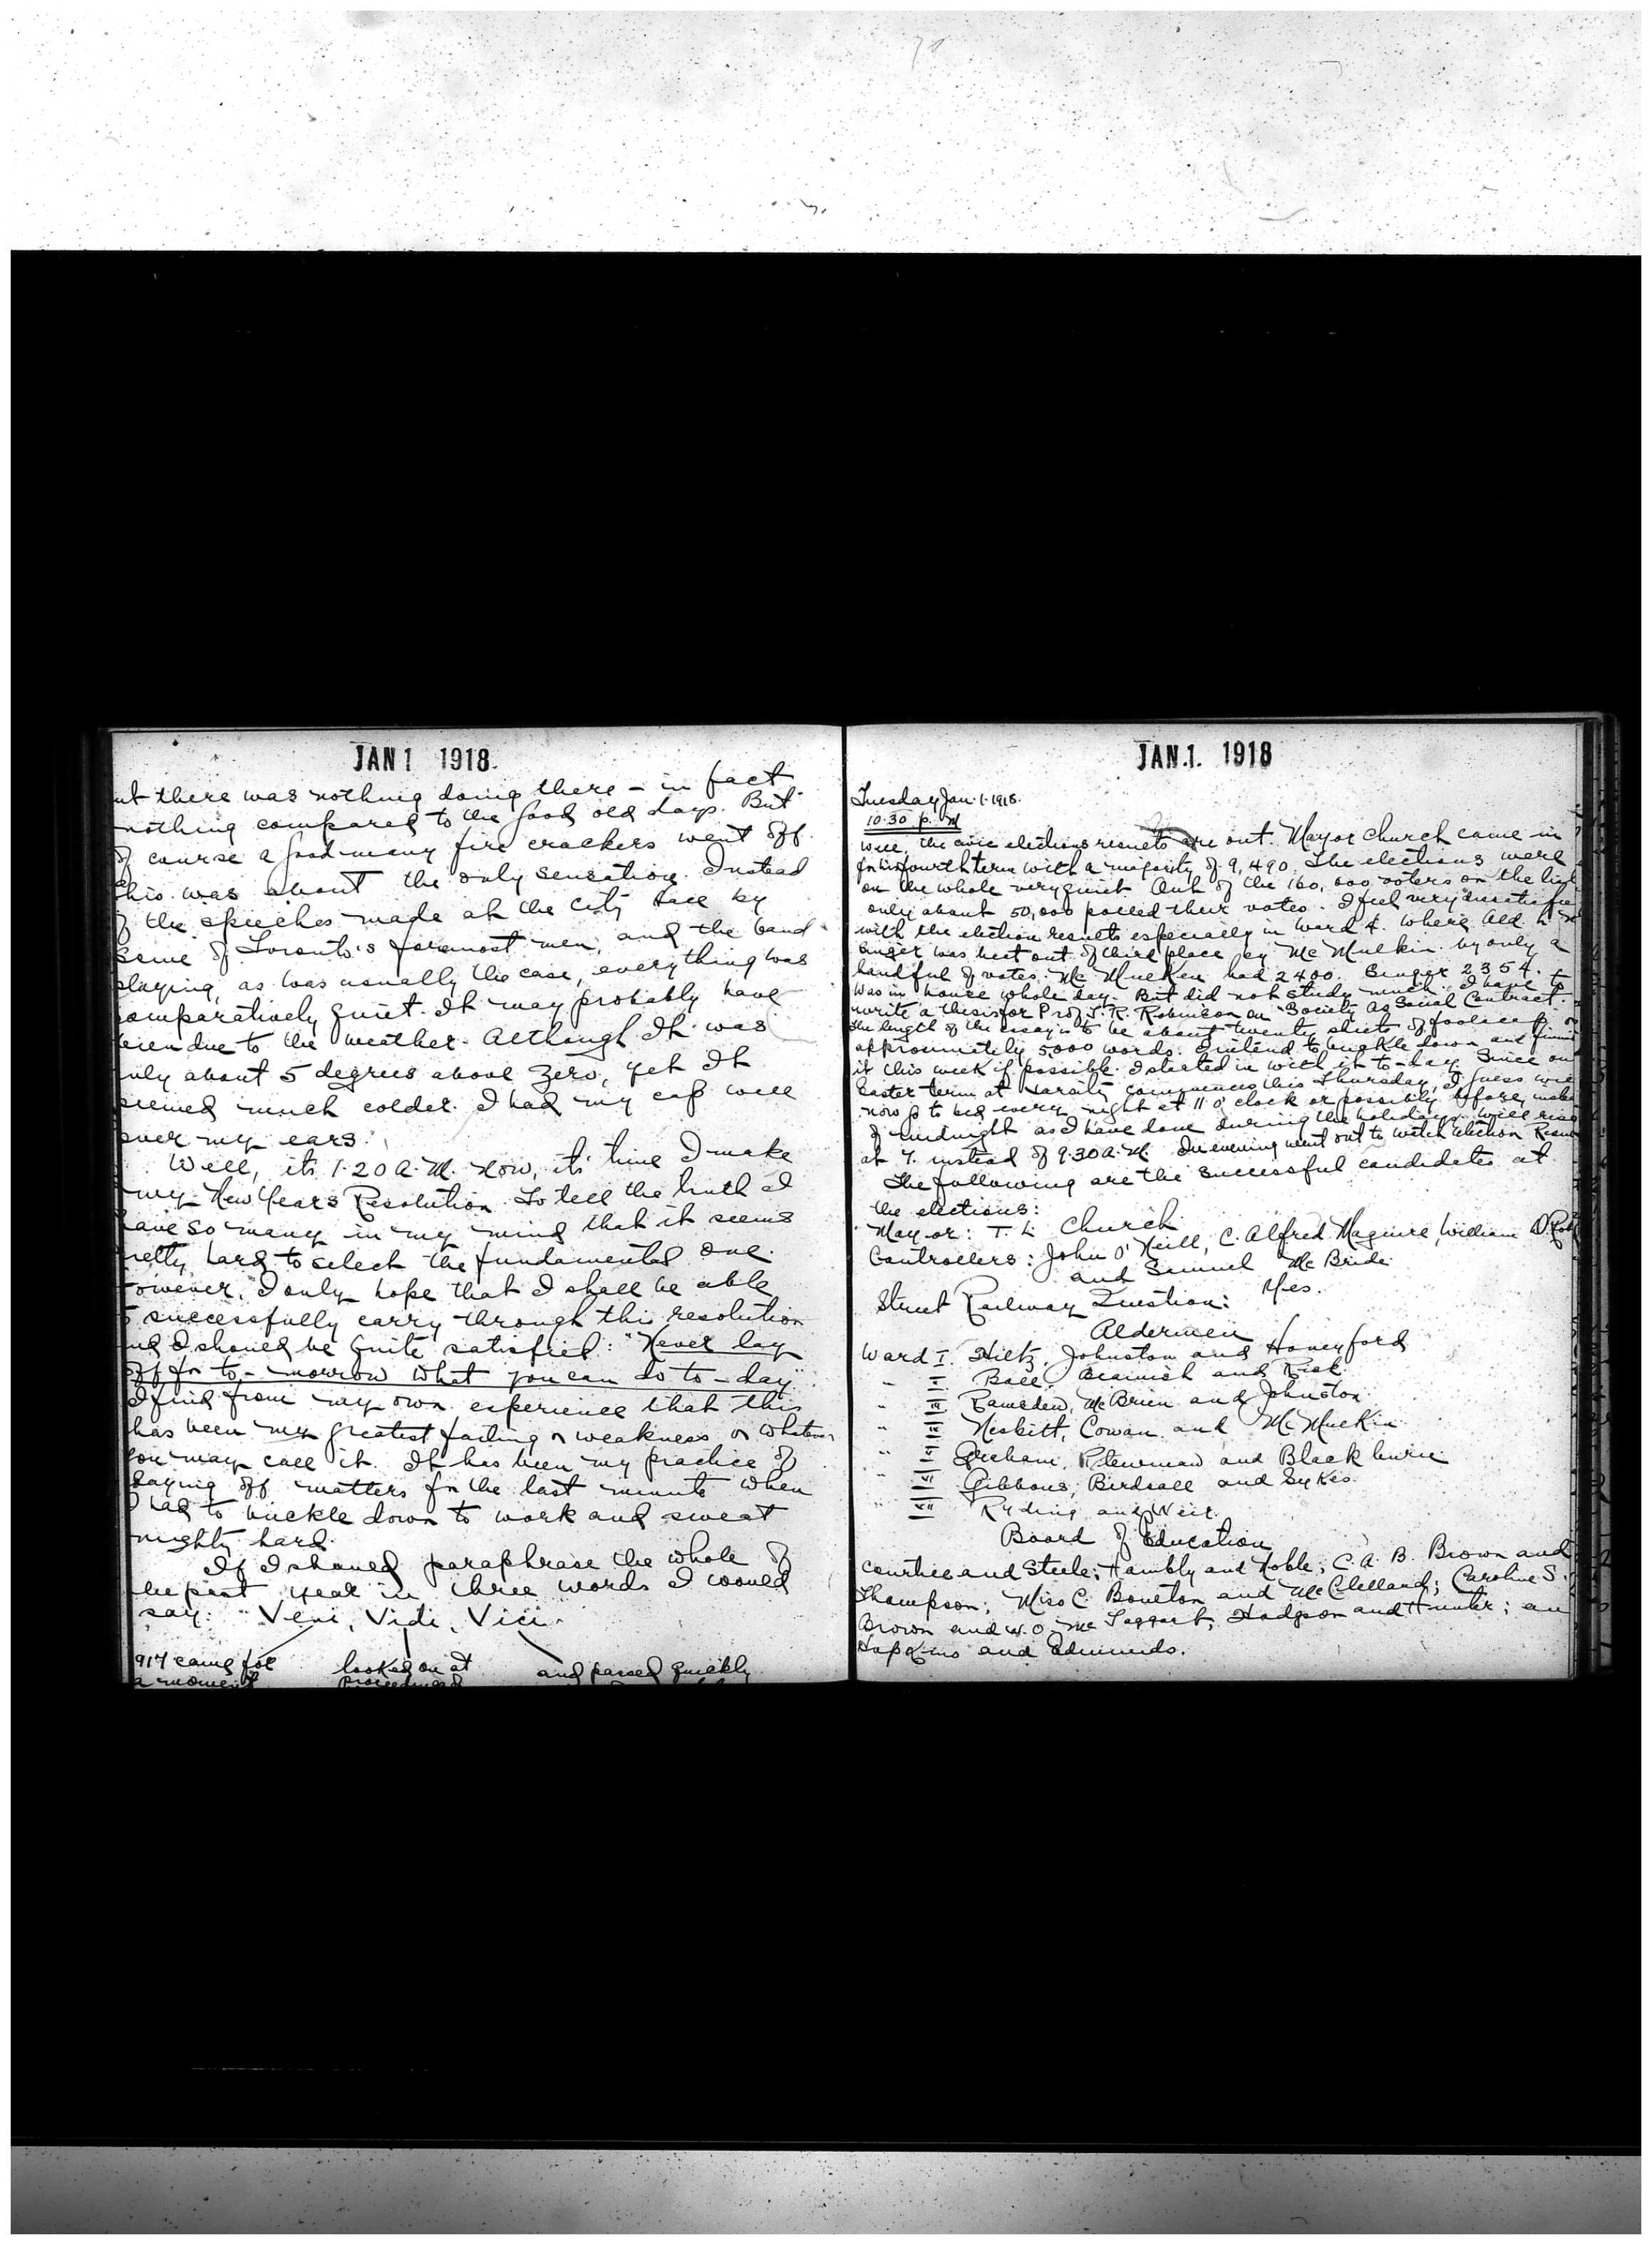 JAN 1 1918.
ut there was nothing doing there - in fact
nothing compared to the good old days. But
of course a good many fire crackers went off.
this was about the only sensation. Instead
f the speeches made at the City Hall by
some of Toronto's foremost men, and the band
playing, as was usually the case, everything was
comparatively quiet. It may probably have
been due to the weather. Although It was
nly about 5 degrees above zero, yet It
seemed much colder. I had my cap well
over my ears.
Well, its 1.20 A.M. now, its time I make
my New Years Resolution. To tell the truth I
have so many in my mind that it seems
retty hard to select the fundamental one.
However, I only hope that I shall be able
to successfully carry through this resolution
and I should be quite satisfied: "Never lay
off for to-morrow what you can do to-day"
I find from my own experience that this
has been my greatest failing or weakness or whatever
you may call it. It has been my practice of
laying off matters for the last minute when
I had to buckle down to work and sweat
mighty hard.
If I should paraphrase the whole of
the past year in three words I would
say: "Veni, Vidi, Vici.
1917 came for looked on at and passed quickly
a moment proceedings
JAN.1. 1918
Tuesday Jan. 1. 1918.
10.30 p. M
Well, the civic elections results are out. Mayor Church came in
for his fourth term with a majority of 9,490. The elections were
on the whole very quiet. Out of the 160,000 voters on the list
only about 50,000 polled their votes. I feel very dissatisfied
with the election results especially in Ward 4. where Ald.
Singer was beat out of third place by McMulkin by only a
handful of votes. McMulkin had 2400. Singer 2354.
Was in house whole day. But did not study much. I have to
write a thesis for Prof. T. R. Robinson on "Society as Social Contract."
the length of the essay is to be about twenty sheets of foolscap or
approximately 5000 words. I intend to buckle down and finish
it this week if possible. I started in with it to-day. Since our
Easter term at Varsity commences this Thursday, I guess will
now go to bed every night at 11 o'clock or possibly before, instead
of midnight as I have done during the holidays. Will rise
at 7. instead of 9.30 A.M. In evening went out to watch election Results
The following are the successful candidates at
the elections:
Mayor: T. L. Church
Controllers: John O'Neill, C. Alfred Maguire, William D. Rob
and Samuel McBride
Street Railway Question: Yes.
Aldermen
Ward I. Hiltz, Johnston and Honeyford
" II Ball, Beamish and Risk.
" III Ramsden, McBrien and Johnston
" IV Nesbitt, Cowan and McMulkin
" V Graham, Plewman and Blackburn
" VI Gibbons, Birdsall and Sykes.
" VII Ryding and Weir.
Board of Education
Courtice and Steele; Hambly and Noble; C. A. B. Brown and
Thompson; Miss C. Boulton and McClelland; Caroline S.
Brown and W. O. McTaggart, Hodgson and Hunter; an
Hopkins and Edmunds.